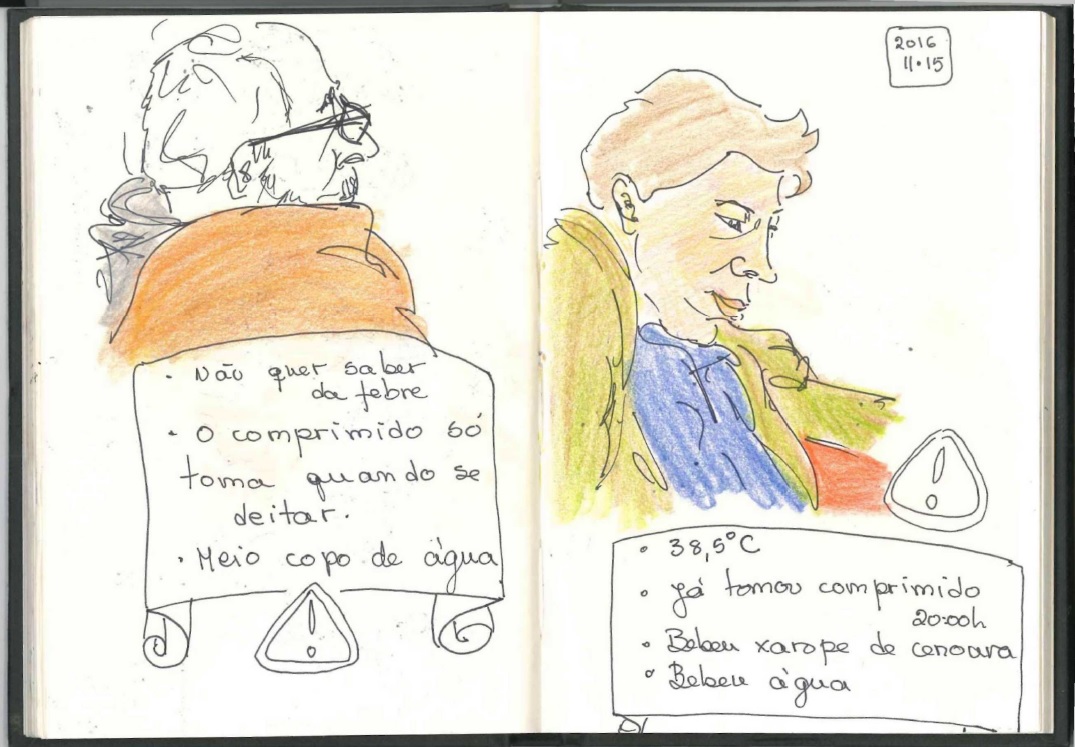 • Não quer saber
da febre
• O comprimido só
toma quando se
deitar.
• Meio copo de água
2016
11•15
• 38,5°C
• Já tomou comprimido
20:00h
• Bebeu xarope de cenoura
• Bebeu água